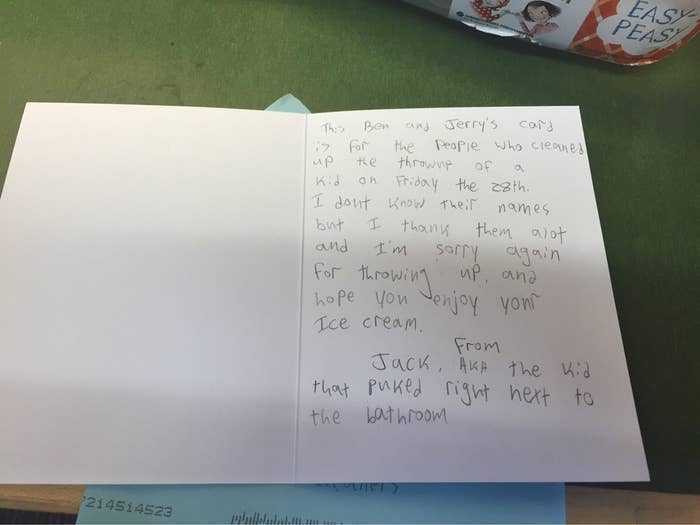 EASY
PEASY
This Ben and Jerry's card
is for the People who cleaned
up the thrownup of a
Kid on Friday the 28th.
I dont know their names
but I thank them alot
and I'm sorry again
for throwing up, and
hope you enjoy your
Ice cream.
From
Jack, AKA the kid
that puked right next to
the bathroom
7214514523